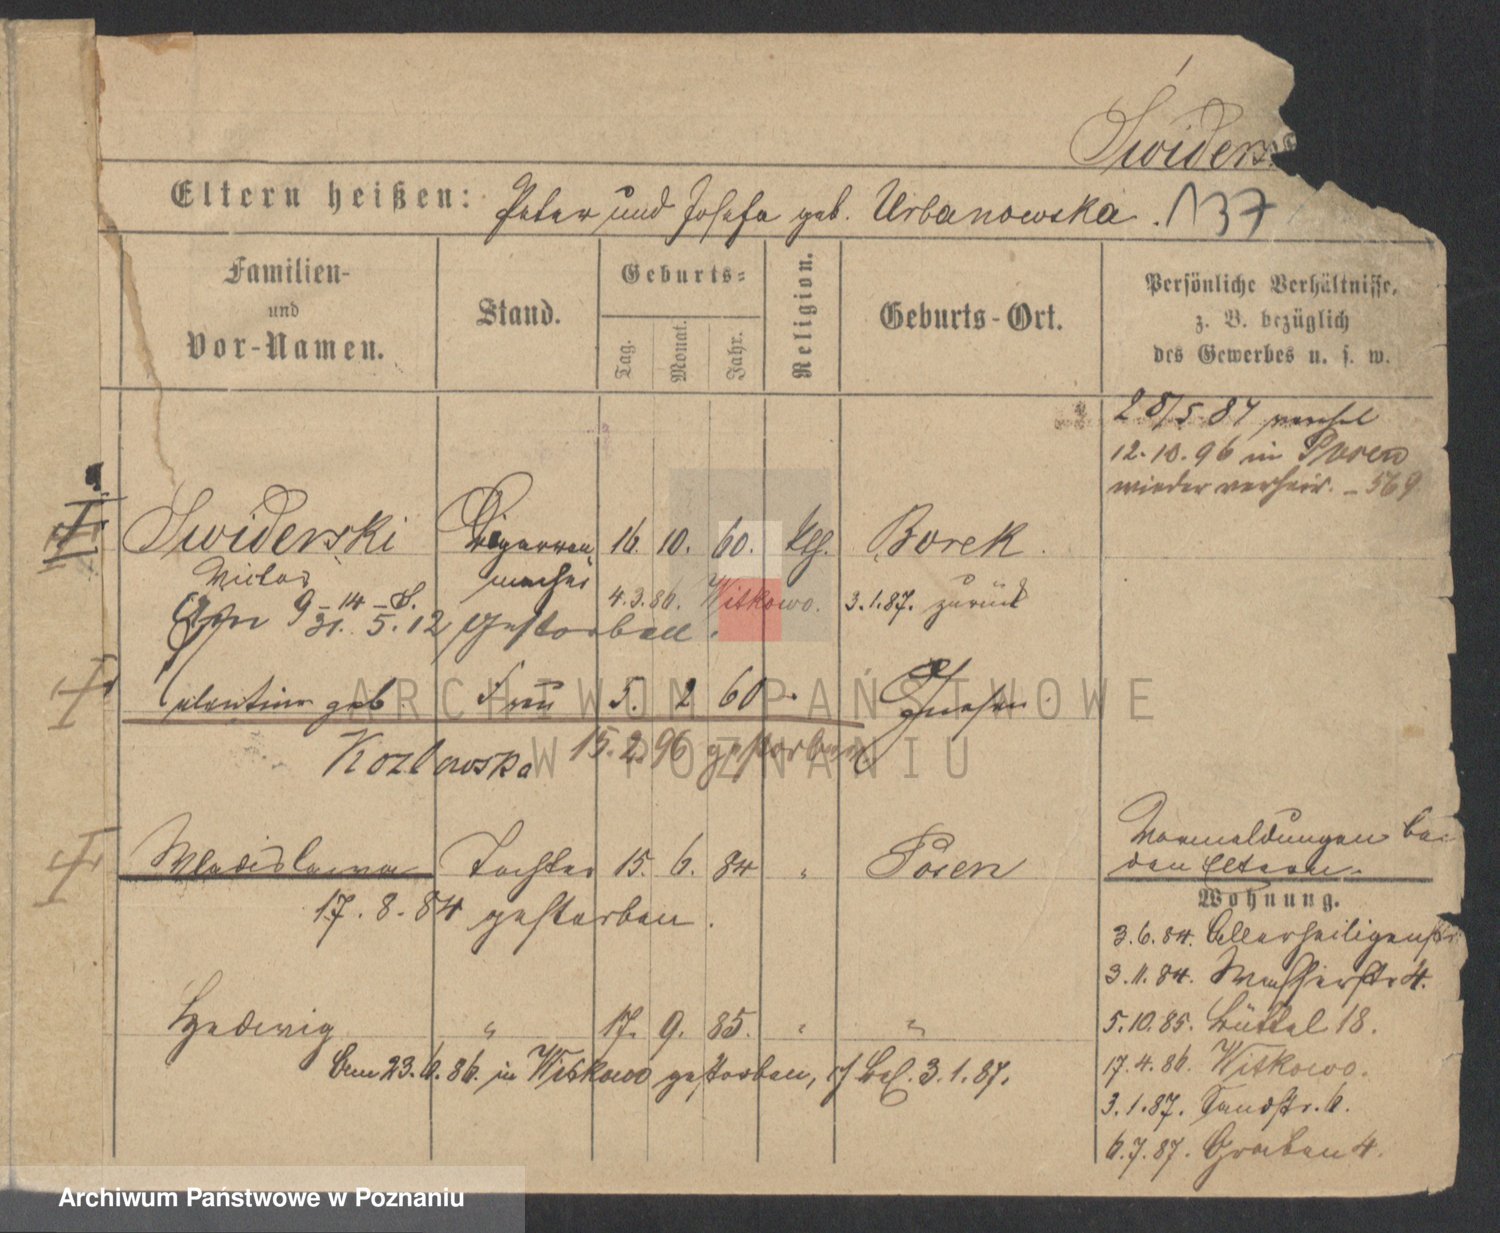 Swiders
Eltern heißen: Peter und Josefa geb. Urbanowska. 137
Familien- und Vor-Namen.
Stand.
Geburts-
Tag. Monat. Jahr.
Religion.
Geburts-Ort.
Persönliche Verhältnisse,
z. B. bezüglich
des Gewerbes u. s. w.
28/5 87
12.10.96 in Posen
wieder verheir. - 569
Swiderski Cigarren 16. 10. 60. kth. Borek.
Victor macher 4.3.86. Witkowo. 3.1.87. zurück
9-14-S.
31. 5. 12 gestorben.
geb. Frau 5. 2 60 Gnesen
Kozlowska 15.2.96 gestorben
Wladislawa Tochter 15. 6. 84 " Posen
17. 8. 84 gestorben.
Hedwig " 17. 9. 85. " "
Am 23.6.86. in Witkowo gestorben, 3.1.87.
Vormeldungen bei
den Eltern.
Wohnung.
3.6.84. Allerheiligenstr.
3.11.84. Wasserstr 4.
5.10.85. Büttel 18.
17.4.86. Witkowo.
3.1.87. Sandstr. 6.
6.7.87. Graben 4.
ARCHIWUM PAŃSTWOWE
W POZNANIU
Archiwum Państwowe w Poznaniu